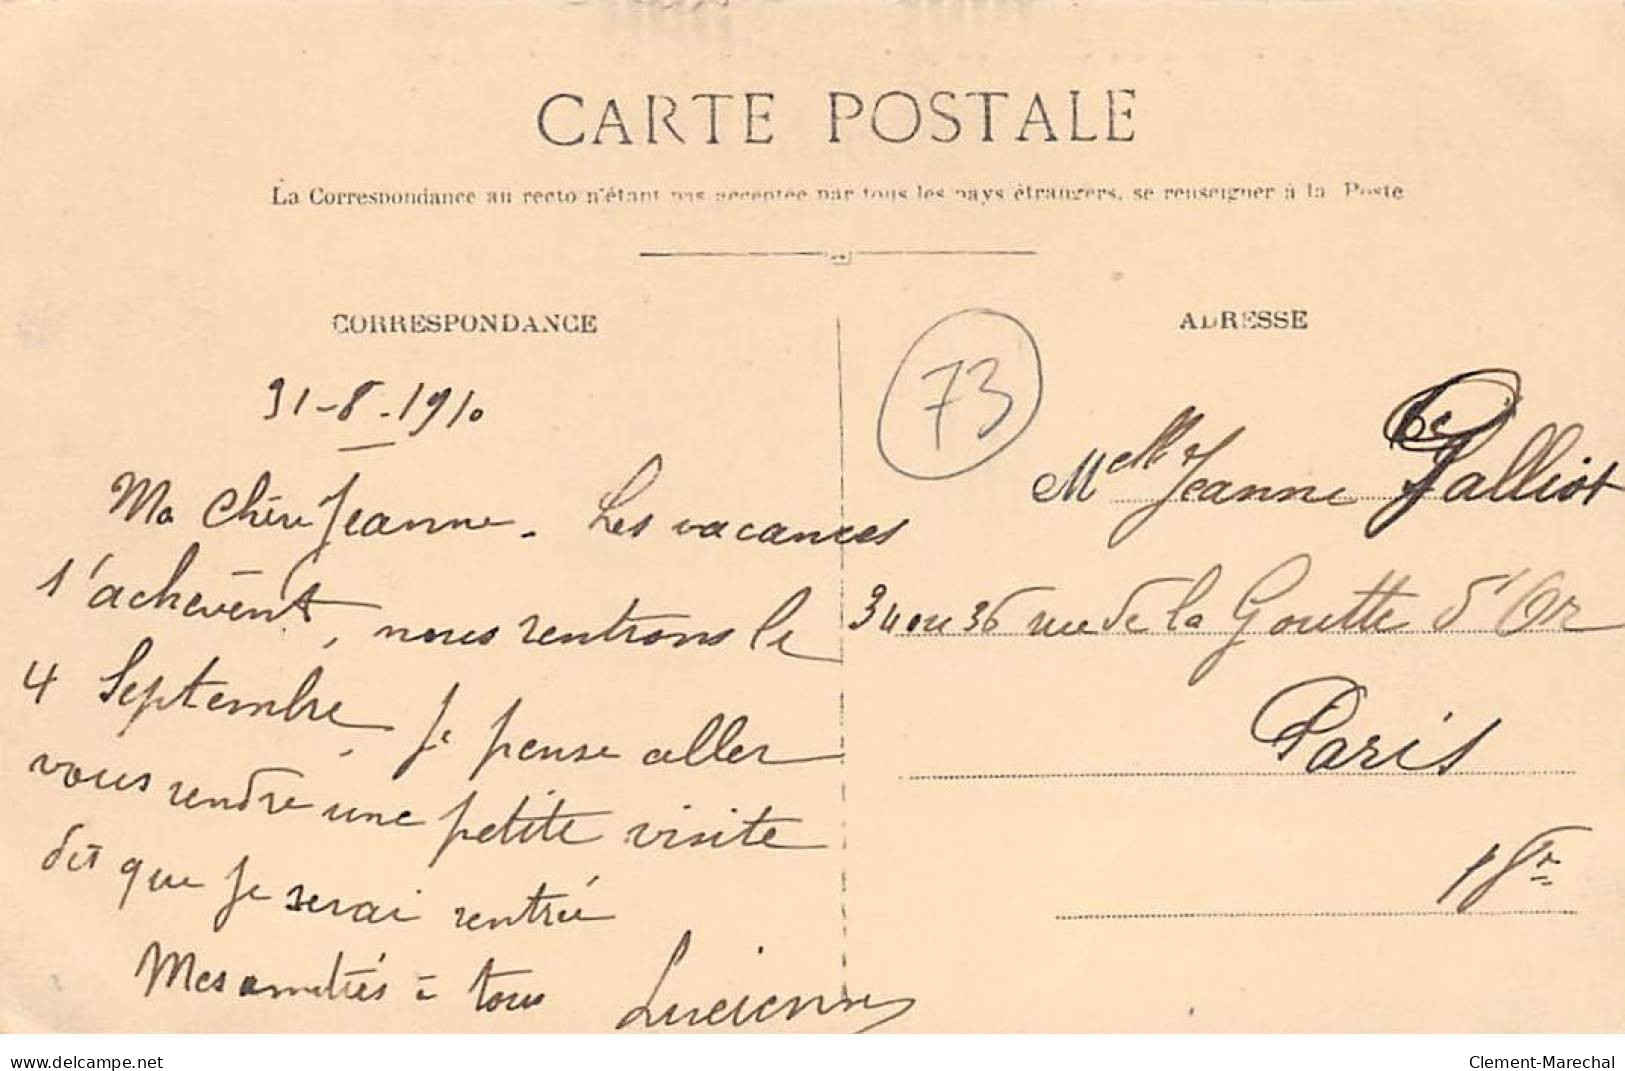 CARTE POSTALE
La Correspondance au recto n'étant pas acceptée par tous les pays étrangers, se renseigner à la Poste
CORRESPONDANCE
31-8-1910
Ma chère Jeanne. Les vacances
s'achèvent, nous rentrons le
4 Septembre, je pense aller
vous rendre une petite visite
dès que je serai rentrée
Mes amitiés à tous Lucienne
ADRESSE
73
Melle Jeanne Palliot
34 ou 36 rue de la Goutte d'Or
Paris
18e
delcampe.net
Clement-Marechal